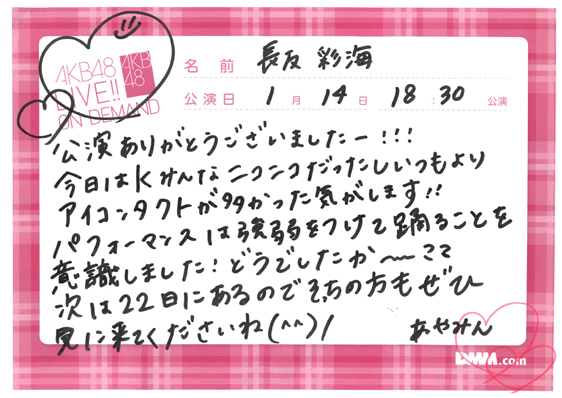 AKB48
LIVE!!
ON DEMAND
AKB
48
名前 長友 彩海
公演日 1月 14日 18:30 公演
公演ありがとうございましたー!!!
今日はKみんなニコニコだったしいつもより
アイコンタクトが多かった気がします!!
パフォーマンスは強弱をつけて踊ることを
意識しました!どうでしたか〜ここ
次は22日にあるのでそちの方もぜひ
見に来てくださいね(^^)/
あやみん
DMM.com